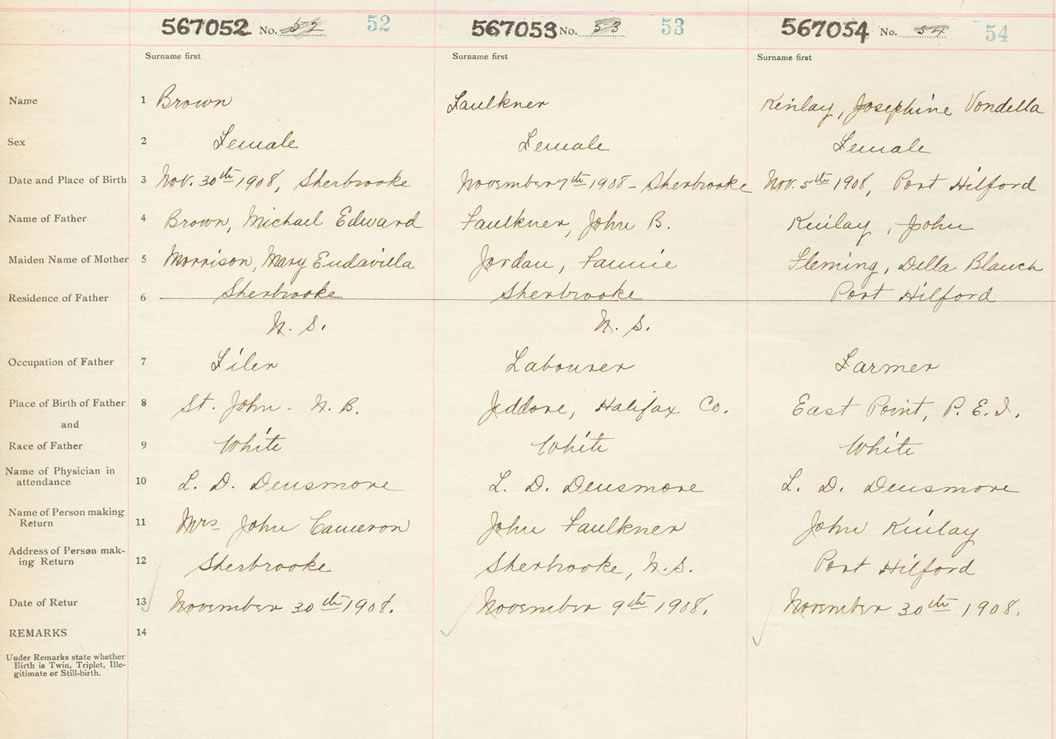 567052 No. 52 52 567053 No. 53 53 567054 No. 54 54
Surname first Surname first Surname first
Name 1 Brown Faulkner Kinlay, Josephine Vondella
Sex 2 Female Female Female
Date and Place of Birth 3 Nov. 30th 1908, Sherbrooke November 7th 1908 - Sherbrooke Nov. 5th 1908, Port Hilford
Name of Father 4 Brown, Michael Edward Faulkner, John B. Kinlay, John
Maiden Name of Mother 5 Morrison, Mary Eudavilla Jordan, Fannie Fleming, Della Blanch
Residence of Father 6 Sherbrooke Sherbrooke Port Hilford
N. S. N. S.
Occupation of Father 7 Filer Labourer Farmer
Place of Birth of Father 8 St. John - N. B. Jeddore, Halifax Co. East Point, P. E. I.
and
Race of Father 9 White White White
Name of Physician in
attendance 10 L. D. Densmore L. D. Densmore L. D. Densmore
Name of Person making
Return 11 Mrs John Cameron John Faulkner John Kinlay
Address of Person mak-
ing Return 12 Sherbrooke Sherbrooke, N. S. Port Hilford
Date of Retur 13 November 30th 1908. November 9th 1908. November 30th 1908.
REMARKS 14
Under Remarks state whether
Birth is Twin, Triplet, Ille-
gitimate or Still-birth.